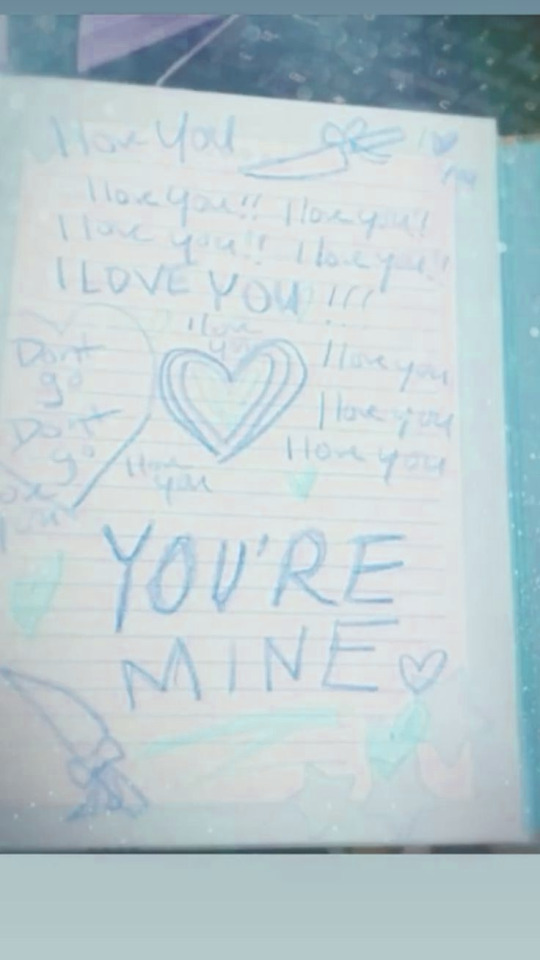 I love You
I
I love you!! I love you!!
I love you!! I love you!!
I LOVE YOU !!!
I love
you
Dont
go
I love you
Dont
go
I love you
I love you
I love
you
YOU'RE
MINE